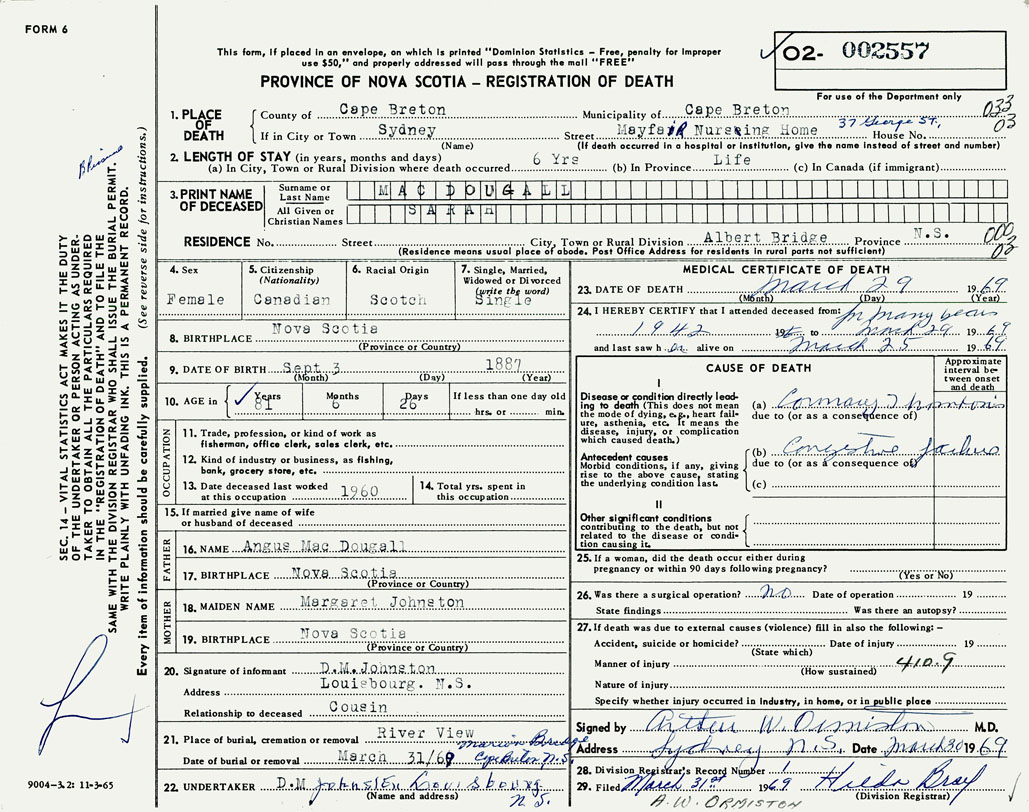 FORM 6
This form, if placed in an envelope, on which is printed "Dominion Statistics – Free, penalty for improper
use $50," and properly addressed will pass through the mail "FREE"
PROVINCE OF NOVA SCOTIA – REGISTRATION OF DEATH
O2- 002557
For use of the Department only
1. PLACE OF DEATH
County of Cape Breton Municipality of Cape Breton 033
If in City or Town Sydney Street Mayfair Nursing Home 37 George St, House No. 03
(Name) (If death occurred in a hospital or institution, give the name instead of street and number)
2. LENGTH OF STAY (in years, months and days)
(a) In City, Town or Rural Division where death occurred 6 Yrs (b) In Province Life (c) In Canada (if immigrant)
3. PRINT NAME OF DECEASED
Surname or Last Name MAC DOUGALL
All Given or Christian Names SARAH
RESIDENCE No. Street City, Town or Rural Division Albert Bridge Province N.S. 000 02
(Residence means usual place of abode. Post Office Address for residents in rural parts not sufficient)
4. Sex Female
5. Citizenship (Nationality) Canadian
6. Racial Origin Scotch
7. Single, Married, Widowed or Divorced (write the word) Single
8. BIRTHPLACE Nova Scotia
(Province or Country)
9. DATE OF BIRTH Sept 3 1887
(Month) (Day) (Year)
10. AGE in ✓ Years 81 Months 6 Days 26 If less than one day old
hrs. or min.
OCCUPATION
11. Trade, profession, or kind of work as
fisherman, office clerk, sales clerk, etc.
12. Kind of industry or business, as fishing,
bank, grocery store, etc.
13. Date deceased last worked at this occupation 1960
14. Total yrs. spent in this occupation
15. If married give name of wife
or husband of deceased
FATHER
16. NAME Angus Mac Dougall
17. BIRTHPLACE Nova Scotia
(Province or Country)
MOTHER
18. MAIDEN NAME Margaret Johnston
19. BIRTHPLACE Nova Scotia
(Province or Country)
20. Signature of informant D.M.Johnston
Address Louisbourg. N.S.
Relationship to deceased Cousin
21. Place of burial, cremation or removal River View Marion Bridge
Date of burial or removal March 31/69 Cape Breton N.S.
22. UNDERTAKER D.M Johnston Louisbourg
(Name and address) N.S.
MEDICAL CERTIFICATE OF DEATH
23. DATE OF DEATH March 29 1969
(Month) (Day) (Year)
24. I HEREBY CERTIFY that I attended deceased from: for many years
1942 19 to March 29 1969
and last saw her alive on March 25 1969
CAUSE OF DEATH
Approximate interval between onset and death
I
Disease or condition directly leading to death (This does not mean the mode of dying, e.g., heart failure, asthenia, etc. It means the disease, injury, or complication which caused death.)
(a) Coronary Thrombosis
due to (or as a consequence of)
Antecedent causes
Morbid conditions, if any, giving rise to the above cause, stating the underlying condition last.
(b) Congestive failure
due to (or as a consequence of)
(c)
II
Other significant conditions contributing to the death, but not related to the disease or condition causing it.
25. If a woman, did the death occur either during
pregnancy or within 90 days following pregnancy?
(Yes or No)
26. Was there a surgical operation? no Date of operation 19
State findings Was there an autopsy?
27. If death was due to external causes (violence) fill in also the following: –
Accident, suicide or homicide? Date of injury 19
(State which)
Manner of injury 410.9
(How sustained)
Nature of injury
Specify whether injury occurred in Industry, in home, or in public place
Signed by Arthur W. Ormiston M.D.
Address Sydney N.S. Date March 30 1969
28. Division Registrar's Record Number
29. Filed March 31st 1969 Hilda Bray
(Division Registrar)
A.W. ORMISTON
SEC. 14 – VITAL STATISTICS ACT MAKES IT THE DUTY
OF THE UNDERTAKER OR PERSON ACTING AS UNDER-
TAKER TO OBTAIN ALL THE PARTICULARS REQUIRED
IN THE "REGISTRATION OF DEATH" AND TO FILE THE
SAME WITH THE DIVISION REGISTRAR WHO SHALL ISSUE THE BURIAL PERMIT.
WRITE PLAINLY WITH UNFADING INK. THIS IS A PERMANENT RECORD.
Every item of information should be carefully supplied. (See reverse side for instructions.)
9004-3.2: 11-3-65